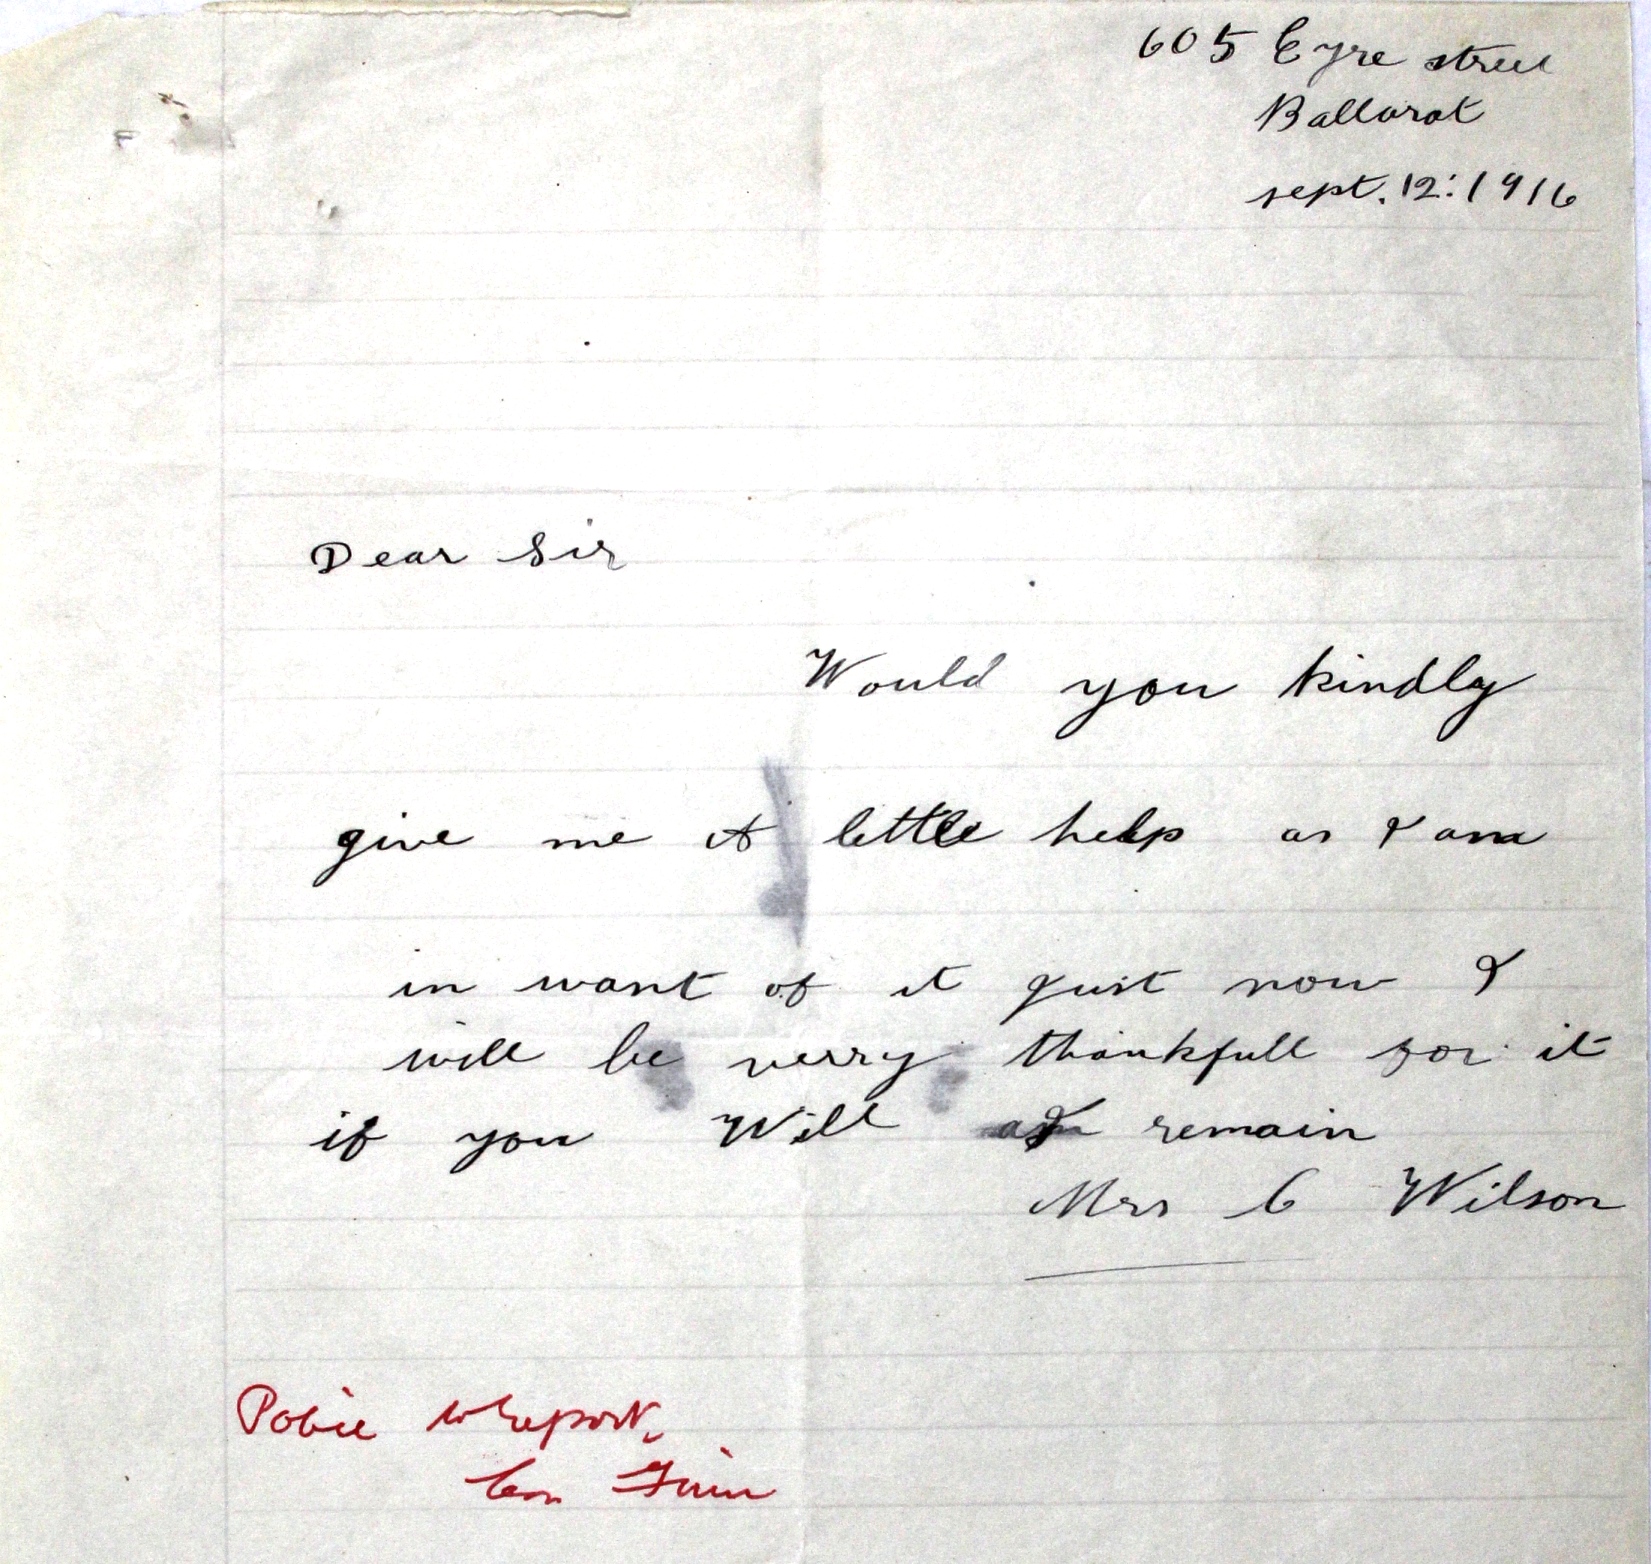 605 Eyre street
Ballarat
sept. 12:1916
Dear Sir
Would you kindly
give me A little help as I am
in want of it just now I
will be verry thankfull for it
if you Will I remain
Mrs C Wilson
Police to report.
Con